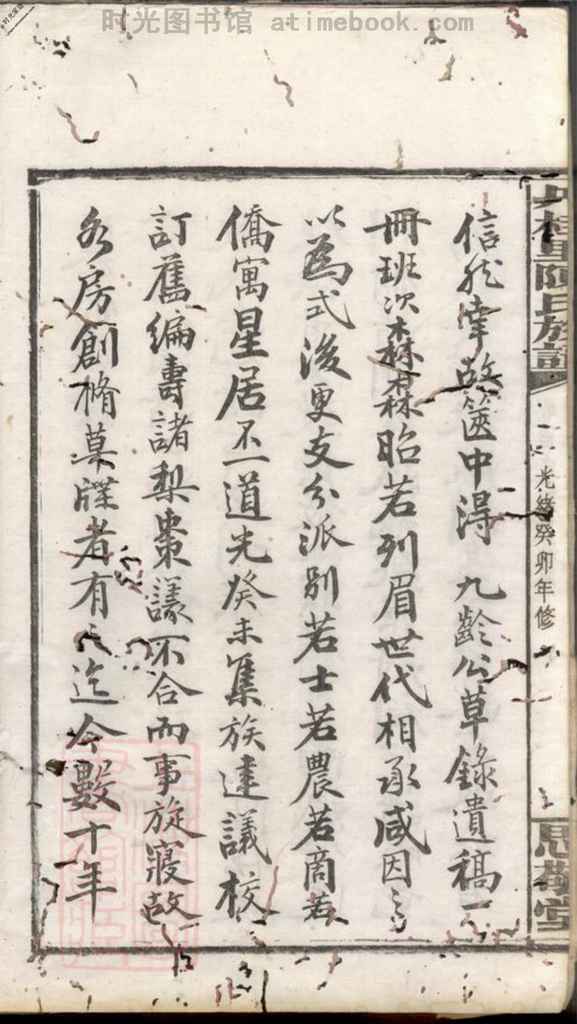 时光图书馆 atimebook.com
陳氏族譜
光緒癸卯年修
思敬堂
信然幸故篋中得 九齡公草錄遺稿一
冊班次森森昭若列眉世代相承咸因之
以為式後更支分派別若士若農若商若
僑寓星居不一道光癸未集族建議校
訂舊編壽諸梨棗議不合而事旋寢故
各房創脩草牒者有之迄今數十年